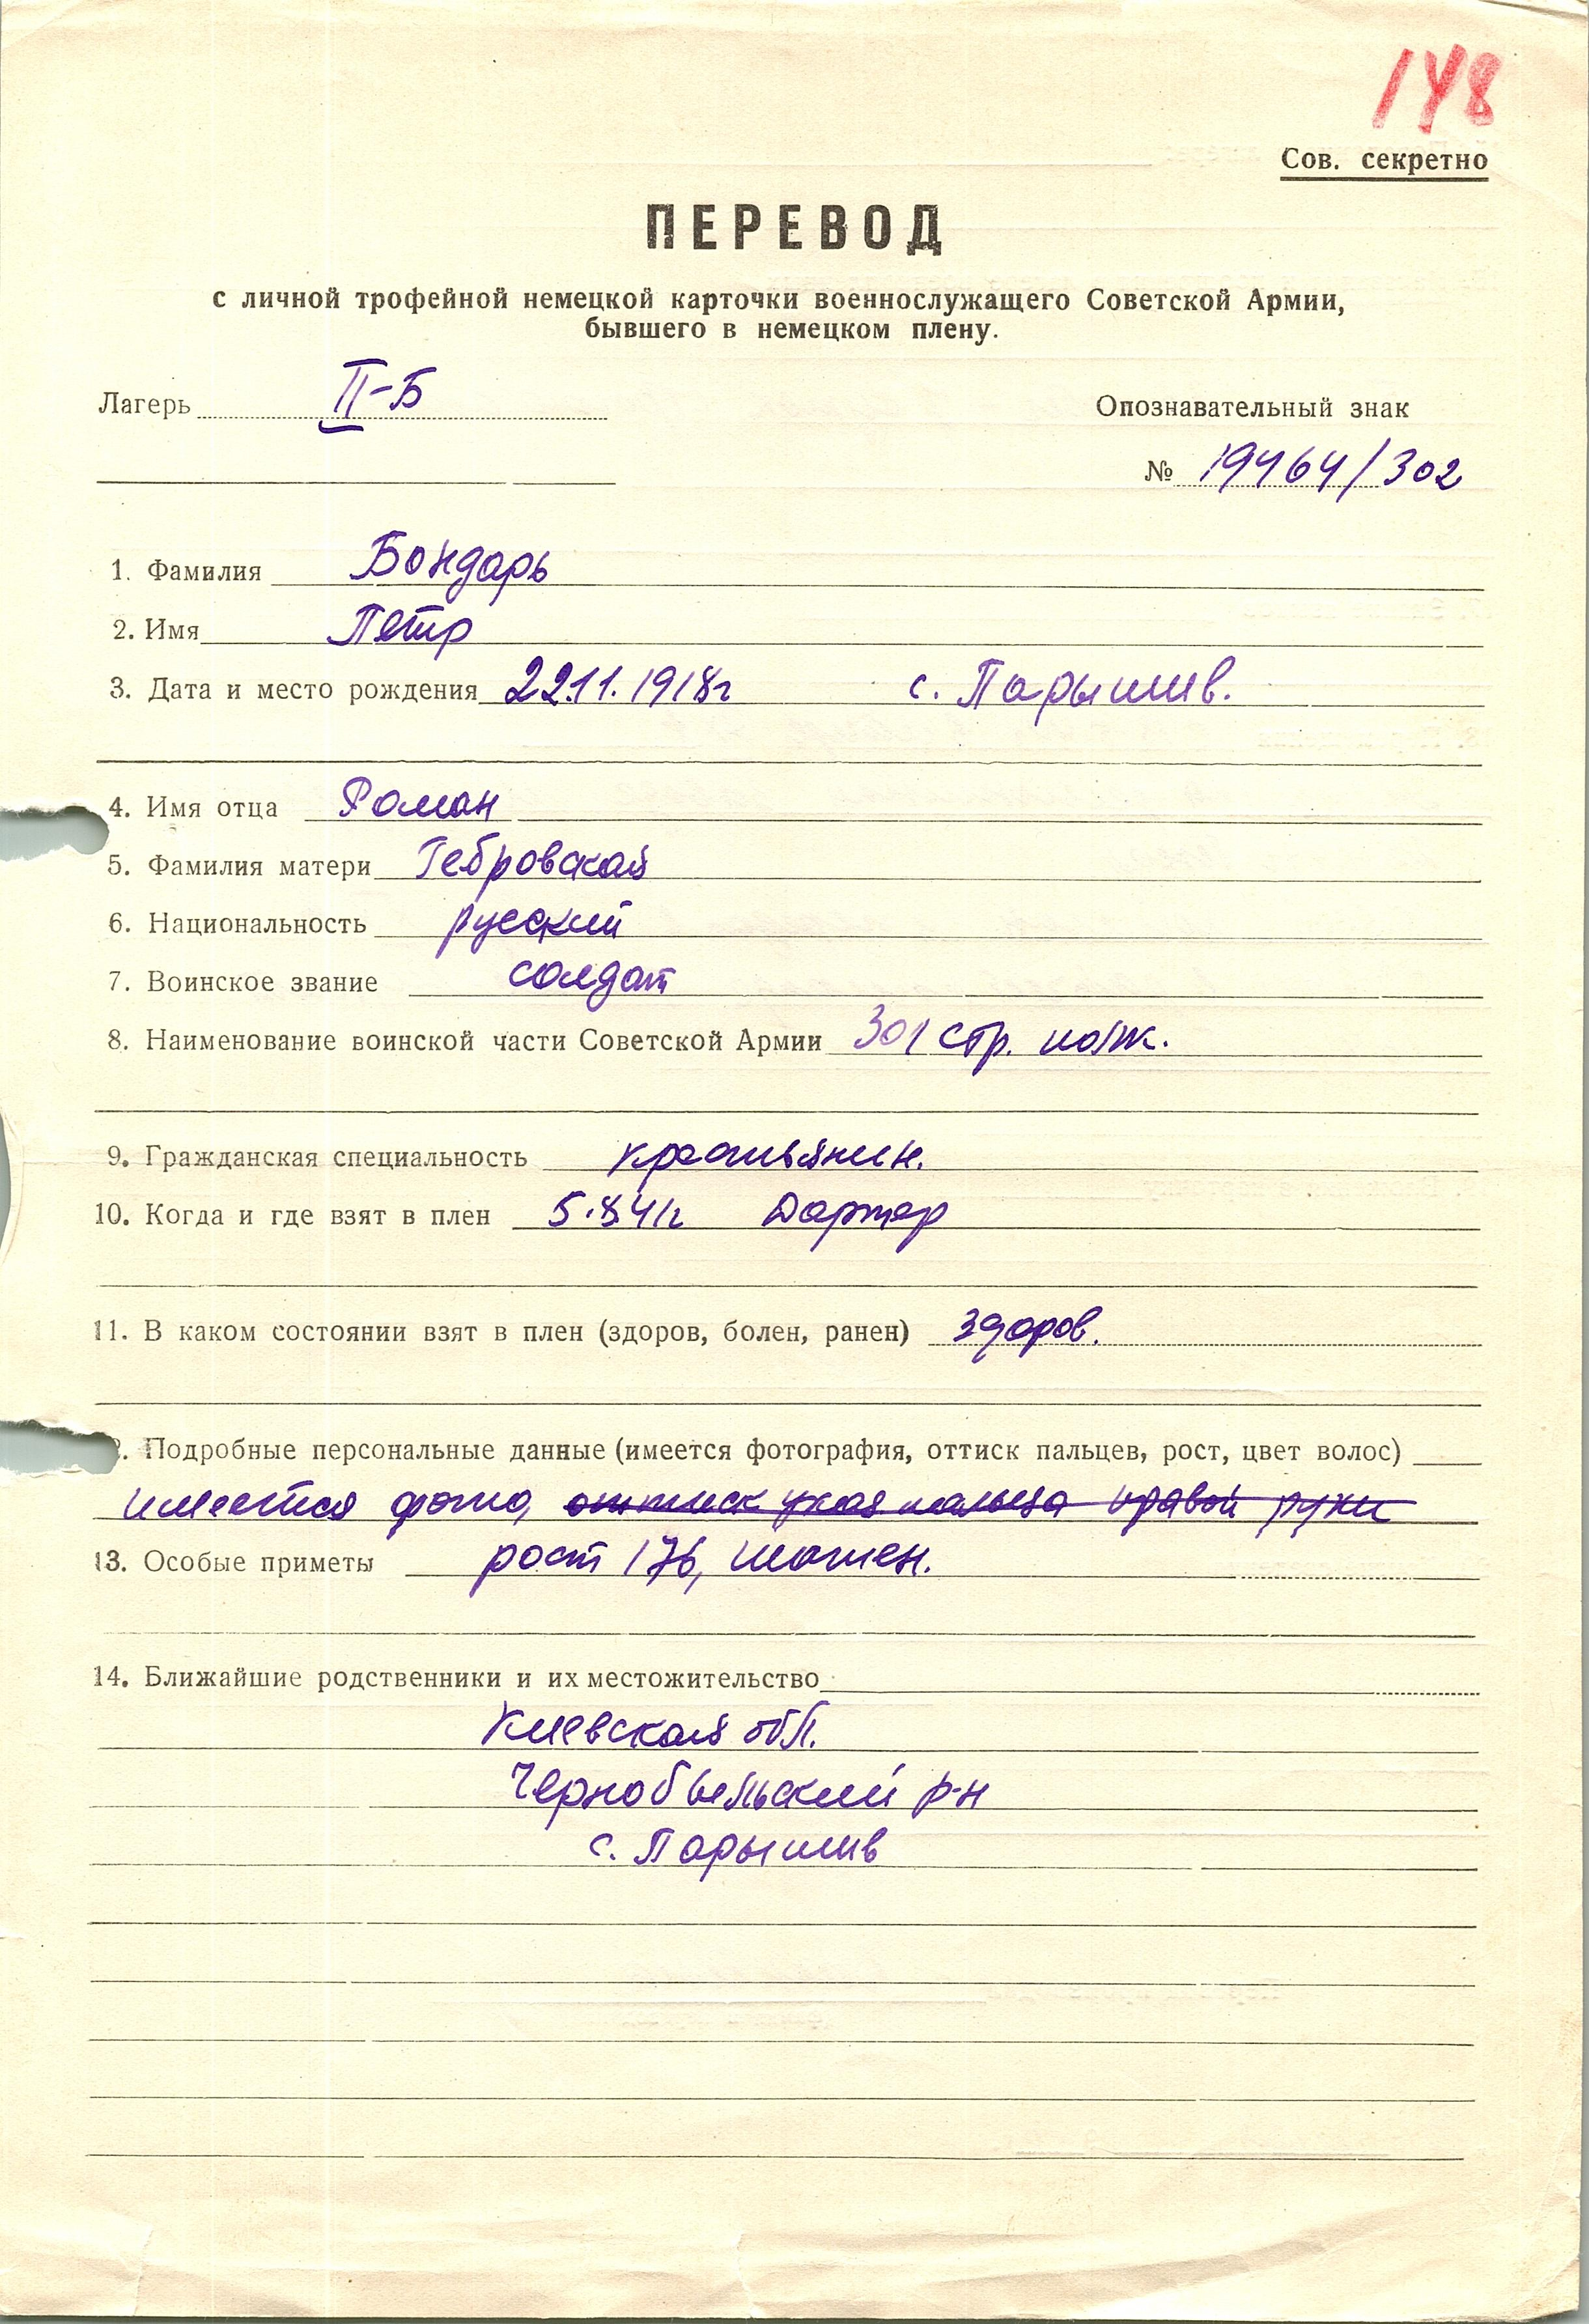 148
Сов. секретно
ПЕРЕВОД
с личной трофейной немецкой карточки военнослужащего Советской Армии,
бывшего в немецком плену.
Лагерь II-Б
Опознавательный знак
№ 19464/302
1. Фамилия Бондарь
2. Имя Петр
3. Дата и место рождения 22.11.1918г с. Парышив.
4. Имя отца Роман
5. Фамилия матери Гебровская
6. Национальность русский
7. Воинское звание солдат
8. Наименование воинской части Советской Армии 301 стр. полк.
9. Гражданская специальность крестьянин.
10. Когда и где взят в плен 5.8.41г
11. В каком состоянии взят в плен (здоров, болен, ранен) здоров.
2. Подробные персональные данные (имеется фотография, оттиск пальцев, рост, цвет волос)
имеется фото, оттиск указ. пальца правой руки
13. Особые приметы рост 176, шатен.
14. Ближайшие родственники и их местожительство
Киевская обл.
Чернобыльский р-н
с. Парышив